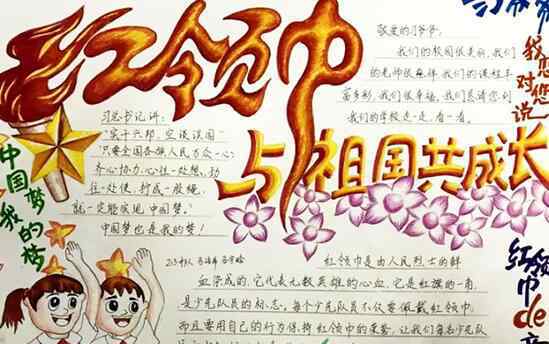 红领巾
与祖国共成长
中国梦
我的梦
习总书记讲:
“实干兴邦,空谈误国”
“只要全国各族人民万众一心,
齐心协力,心往一处想,劲
往一处使,拧成一股绳,
就一定能实现中国梦。”
中国梦也是我的梦!
敬爱的习爷爷:
我们的校园很美丽,我们
的老师很慈祥,我们的课程丰
富多彩,我们很幸福,我们邀请您到
我们的学校走一走,看一看。
我想
对您
说
红领巾是由人民烈士的鲜
血染成的,它代表无数英雄的心血,它是红旗的一角,
是少先队员的标志。每个少先队员不仅要佩戴红领巾,
而且要用自己的行为保持红领巾的荣誉,让我们每名少先队
红领
巾
de